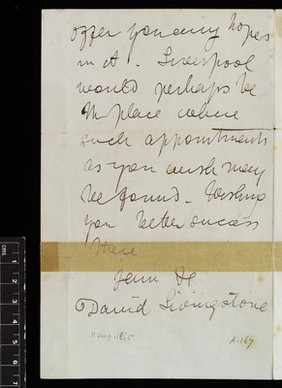 offer you any hopes
in it. Liverpool
would perhaps be
the place where
such appointments
as you wish may
be found - Wishing
you better success
there
David Livingstone
11 Aug. 1865
A.167
CMS.
1
2
3
4
5